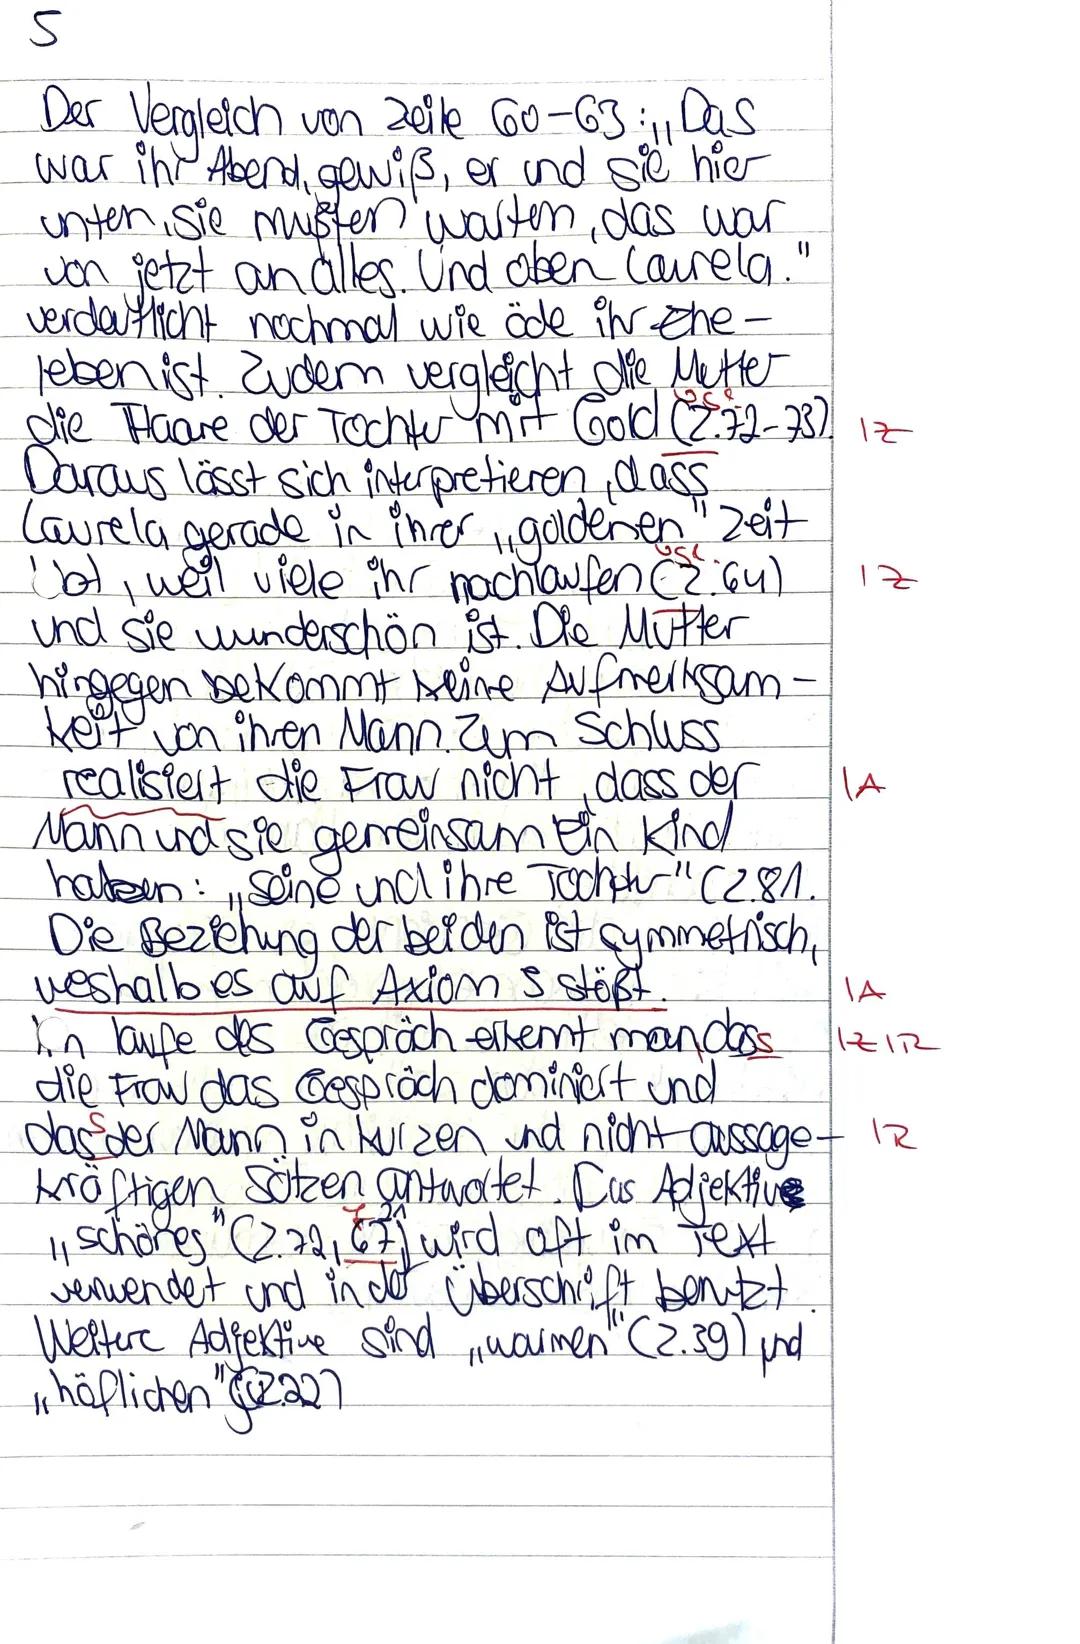 5
Der Vergleich von Zeile 60-63: „Das
war ihr Abend, gewiß, er und sie hier
unten, sie mußten warten, das war
von jetzt an alles. Und oben Laurela."
verdeutlicht nochmal wie öde ihr Ehe-
leben ist. Zudem vergleicht die Mutter
die Haare der Tochter mit Gold (Z.72-73). IZ
vgl.
Daraus lässt sich interpretieren, dass
Laurela gerade in ihrer „goldenen" Zeit
ist, weil viele ihr nachlaufen (Z.64) IZ
vgl.
und sie wunderschön ist. Die Mutter
hingegen bekommt keine Aufmerksam-
keit von ihren Mann. Zum Schluss
realisiert die Frau nicht, dass der IA
Mann und sie gemeinsam ein Kind
haben: „seine und ihre Tochter" (Z.81.
Die Beziehung der beiden ist symmetrisch,
weshalb es auf Axiom 5 stößt. IA
Im laufe des Gespräch erkennt man, dass IZ IR
die Frau das Gespräch dominiert und
dass der Mann in kurzen und nicht aussage- IR
kräftigen Sätzen antwortet. Das Adjektive
„schönes" (Z.72, 67) wird oft im Text
verwendet und in der Überschrift benutzt.
Weitere Adjektive sind „warmen" (Z.39) und
„höflichen" (Z.22)